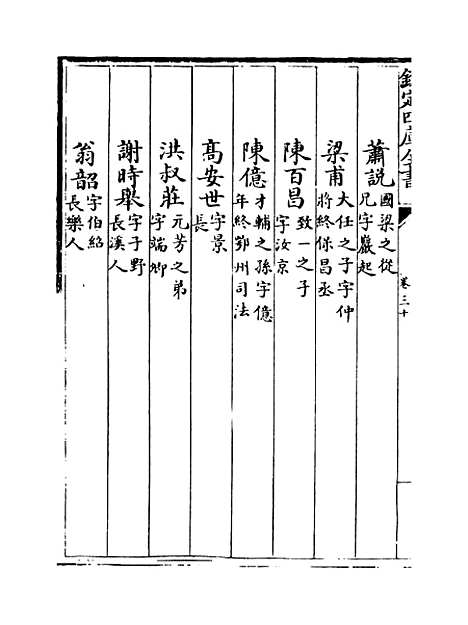 欽定四庫全書
卷三十
蕭說國梁之從兄字巖起
梁甫大任之子字仲將終保昌丞
陳百昌致一之子字汝京
陳億才輔之孫字億年終鄂州司法
高安世字景長
洪叔莊元芳之弟字端卿
謝時舉字子野長溪人
翁韶字伯紹長樂人